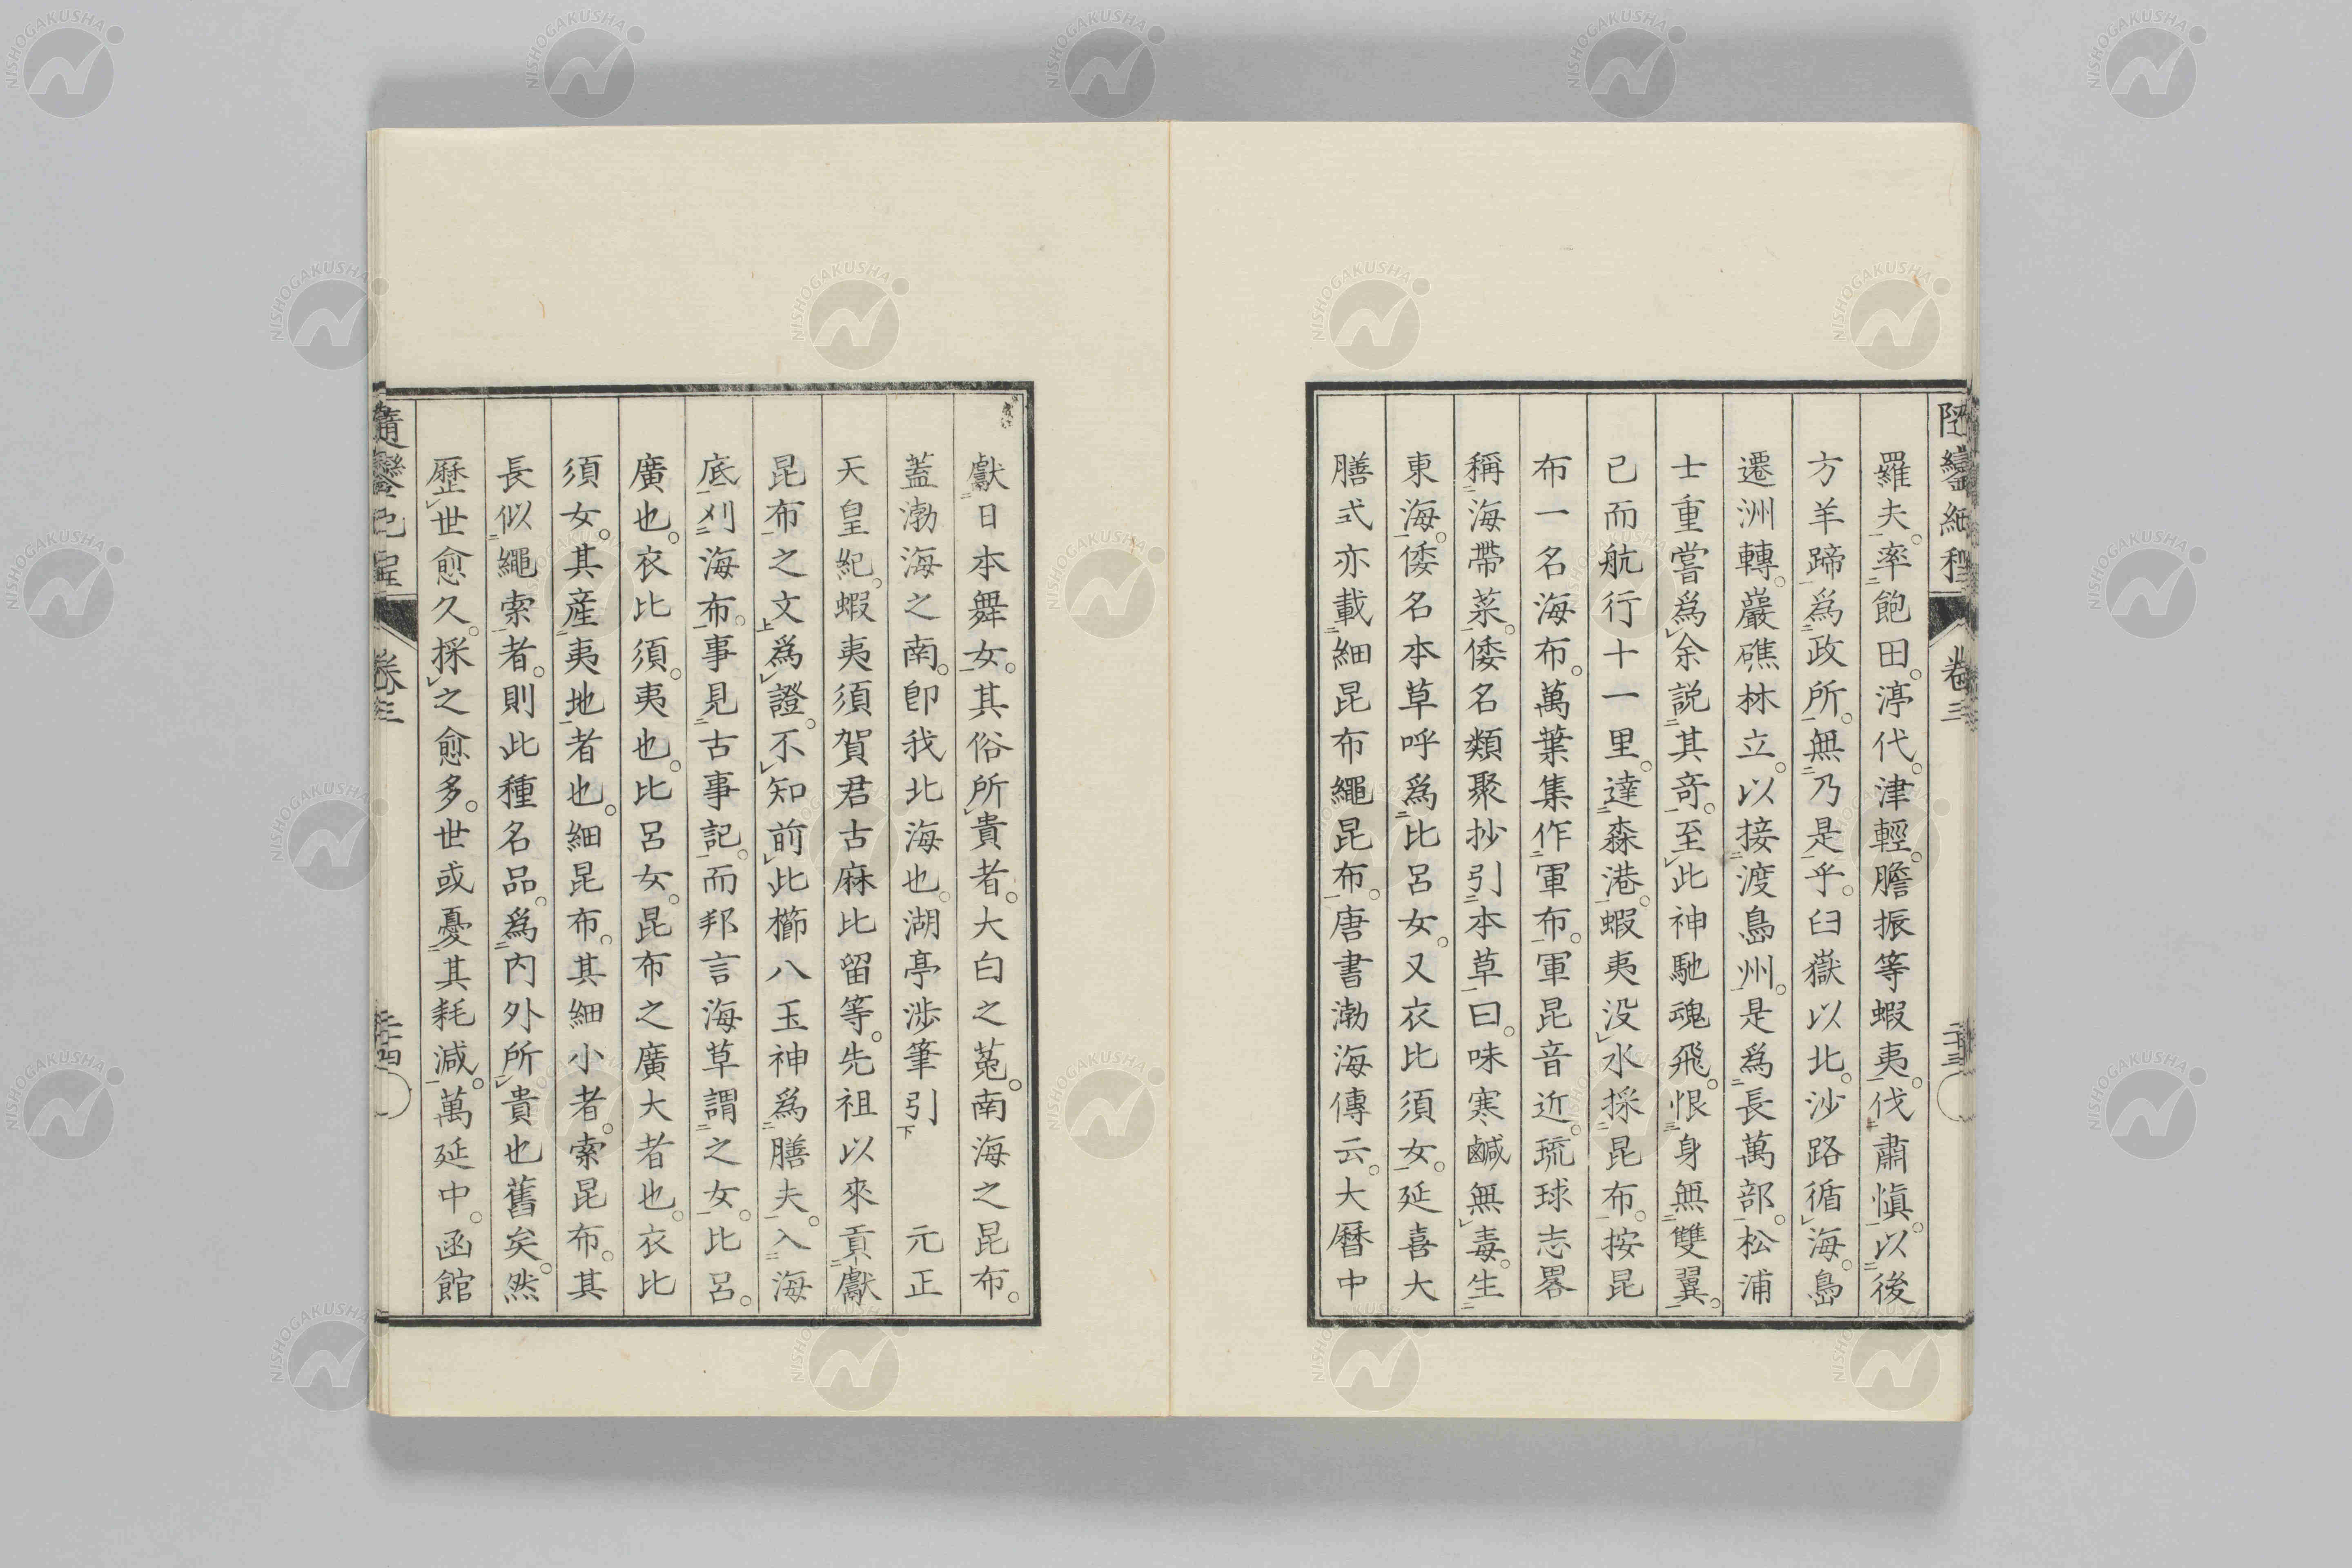 羅夫。率飽田。渟代。津輕。膽振等蝦夷。伐肅愼。以後
方羊蹄爲政所。無乃是乎。臼嶽以北。沙路循海。島
遷洲轉。巖礁林立。以接渡島州。是爲長萬部。松浦
士重嘗爲余説其奇。至此神馳魂飛。恨身無雙翼。
已而航行十一里。達森港。蝦夷没水採昆布。按昆
布一名海布。萬葉集作軍布。軍昆音近。琉球志畧
稱海帶菜。倭名類聚抄引本草曰。味寒鹹無毒。生
東海。倭名本草呼爲比呂女。又衣比須女。延喜大
膳式亦載細昆布繩昆布。唐書渤海傳云。大曆中
卷三
獻日本舞女。其俗所貴者。大白之菟。南海之昆布。
蓋渤海之南。卽我北海也。湖亭渉筆引 元正
天皇紀。蝦夷須賀君古麻比留等。先祖以來貢獻
昆布之文爲證。不知前此櫛八玉神爲膳夫。入海
底刈海布。事見古事記。而邦言海草謂之女。比呂。
廣也。衣比須。夷也。比呂女。昆布之廣大者也。衣比
須女。其産夷地者也。細昆布。其細小者。索昆布。其
長似繩索者。則此種名品。爲内外所貴也舊矣。然
歷世愈久。採之愈多。世或憂其耗減。萬延中。函館
卷三